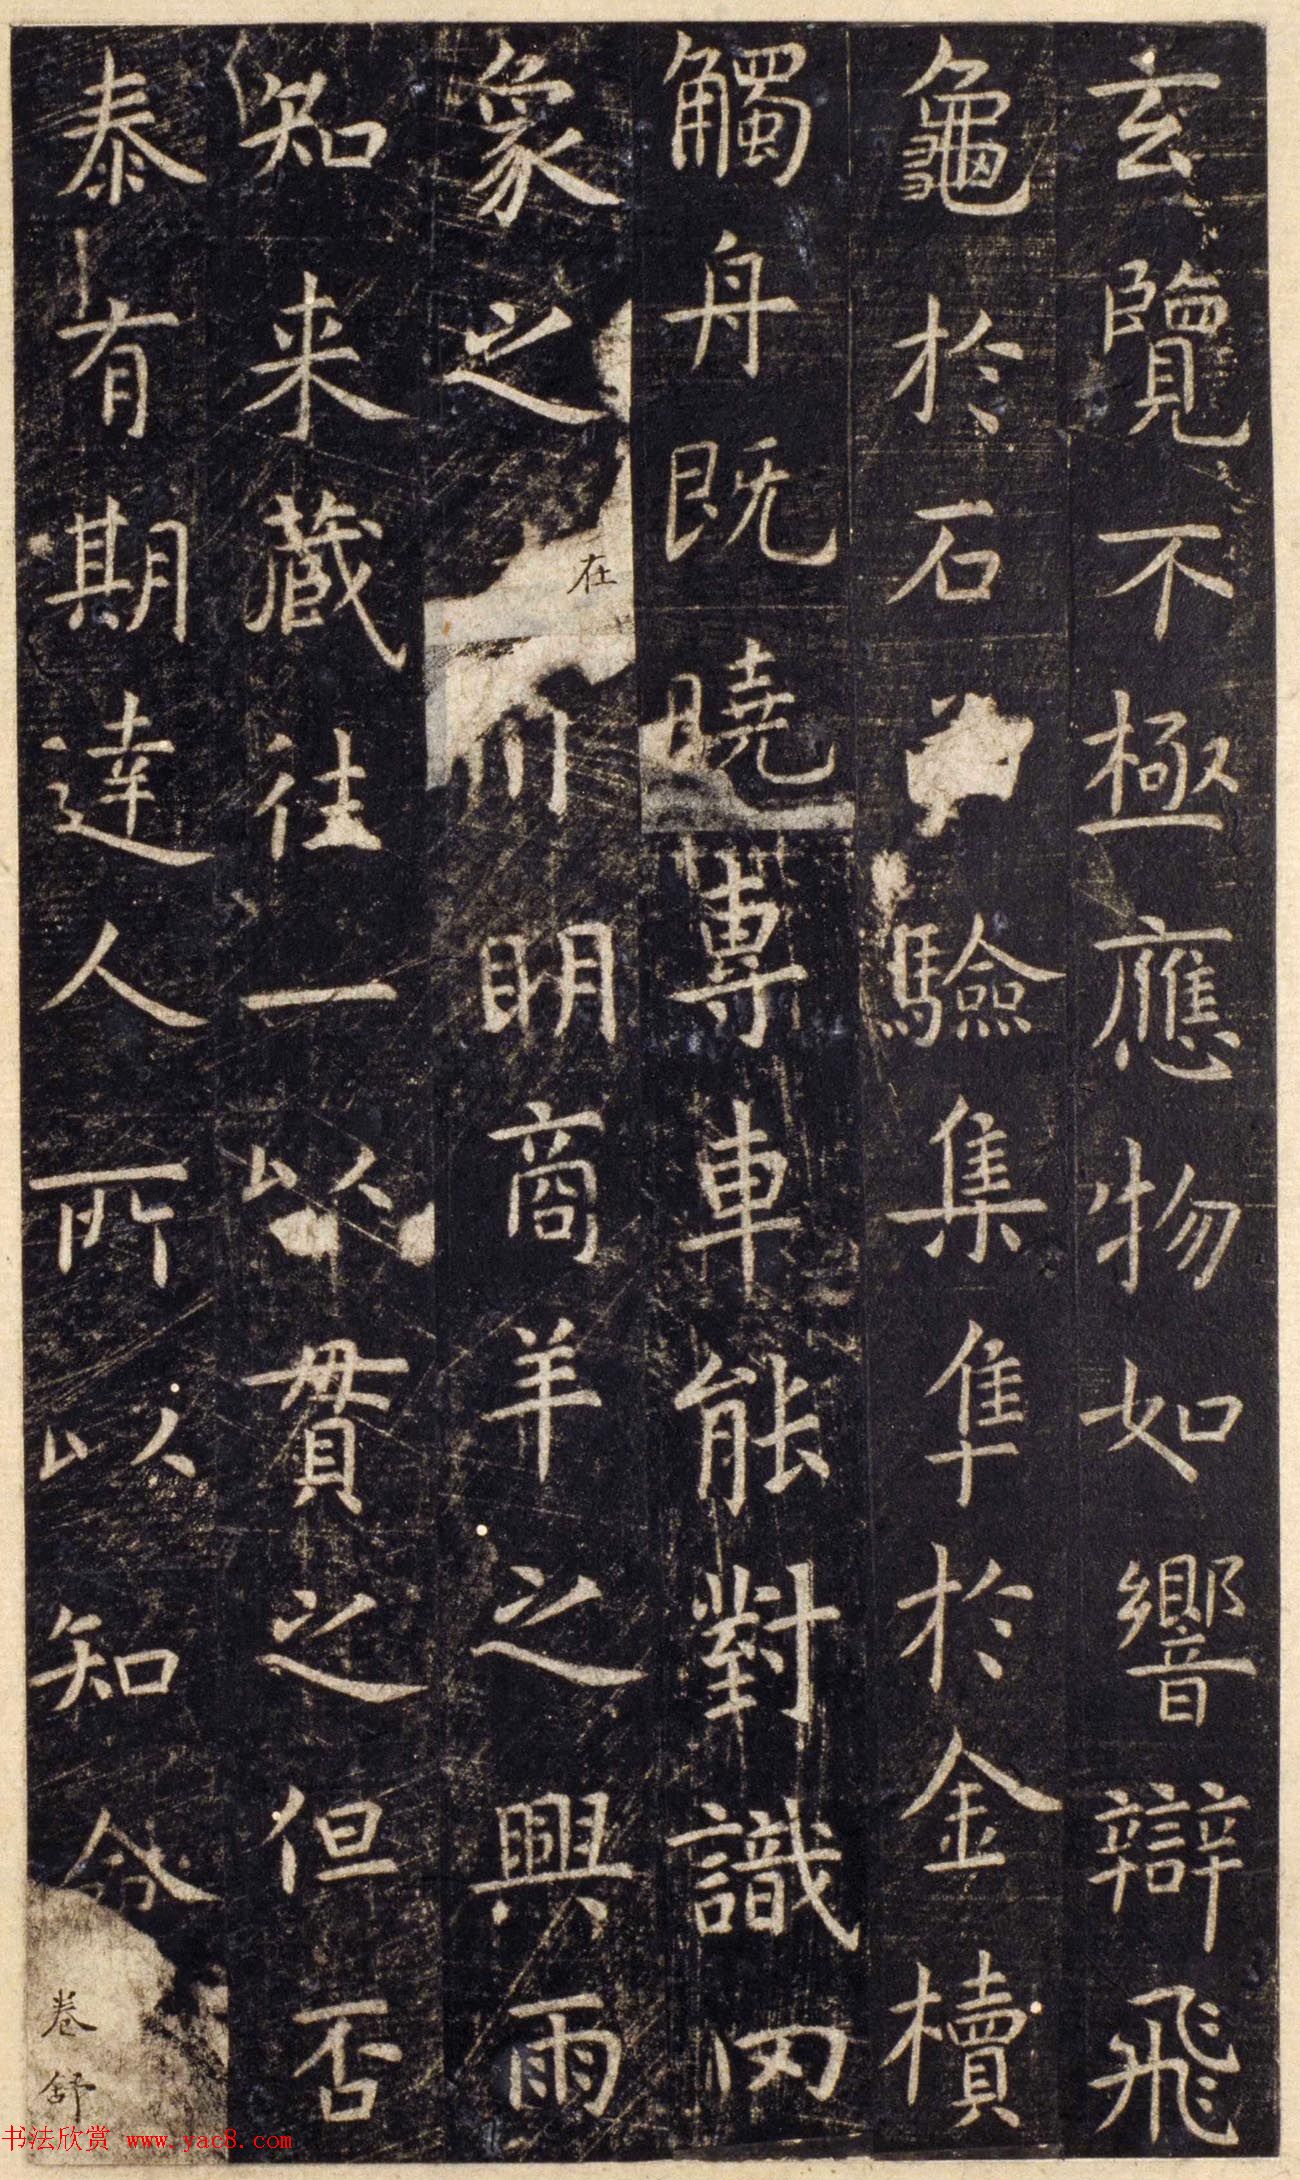 玄覽不極應物如響辯飛
龜於石 驗集隼於金櫝
觸舟既曉專車能對識罔
象之在川明商羊之興雨
知来藏往一以貫之但否
泰有期達人所以知命卷舒
书法欣赏 www.yac8.com